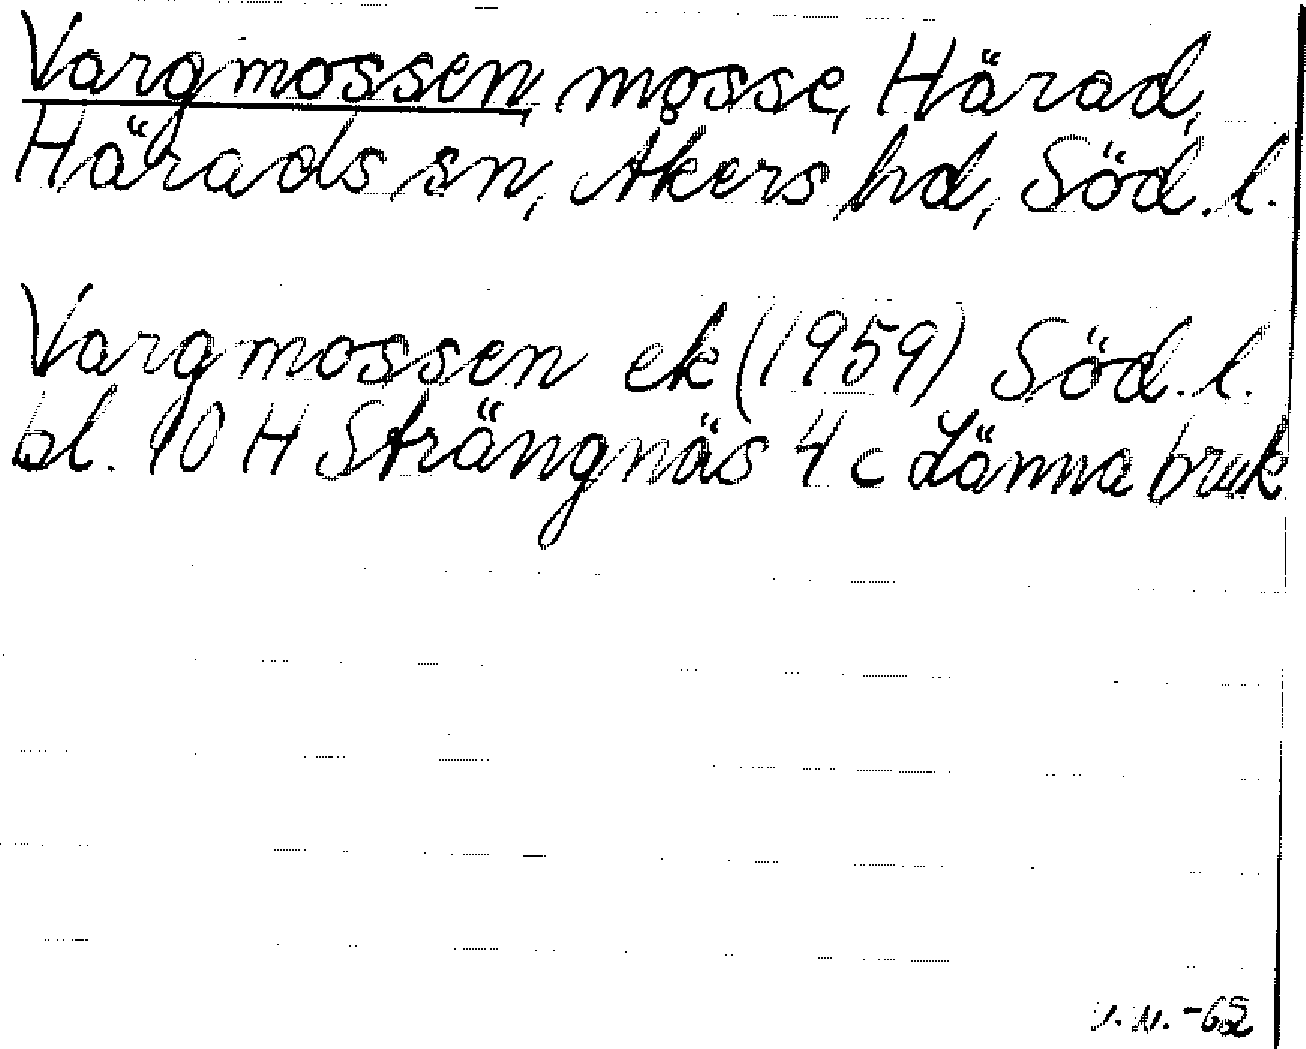 Vargmossen, mosse, Härad,
Härads sn, Åkers hd, Söd. l.
Vargmossen ek (1959) Söd. l.
bl. 10 H Strängnäs 4 c Länna bruk
-62